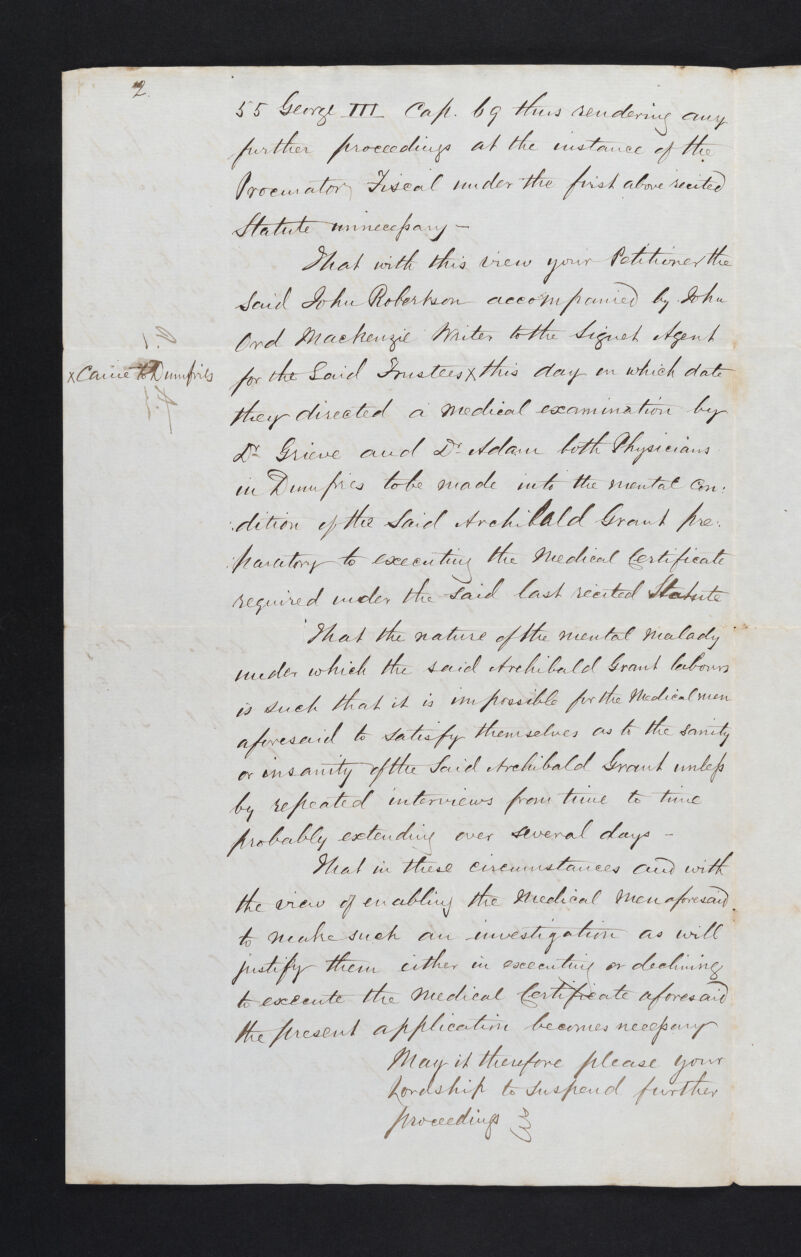 2.
55 George III Cap. 69 thus rendering any
further proceedings at the instance of the
Procurator Fiscal under the first above recited
Statute unnecessary –
That with this view your Petitioner the
Said John Robertson accompanied by John
Ord Mackenzie Writer to the Signet Agent
for the Said Trustees x this day on which date
x Came to Dumfries
they directed a medical examination by
Dr Grieve and Dr Adam both Physicians
in Dumfries to be made into the mental con:
:dition of the Said Archibald Grant pre:
:paratory to executing the Medical Certificate
required under the said last recited Statute
That the nature of the mental malady
under which the said Archibald Grant labours
is such that it is impossible for the Medical men
aforesaid to satisfy themselves as to the sanity
or insanity of the Said Archibald Grant unless
by repeated interviews from time to time
probably extending over several days –
That in these circumstances and with
the view of enabling the Medical Men aforesaid
to make such an investigation as will
justify them either in executing or declining
to execute the Medical Certificate aforesaid
the present application becomes necessary
May it therefore please your
Lordship to suspend further
proceedings